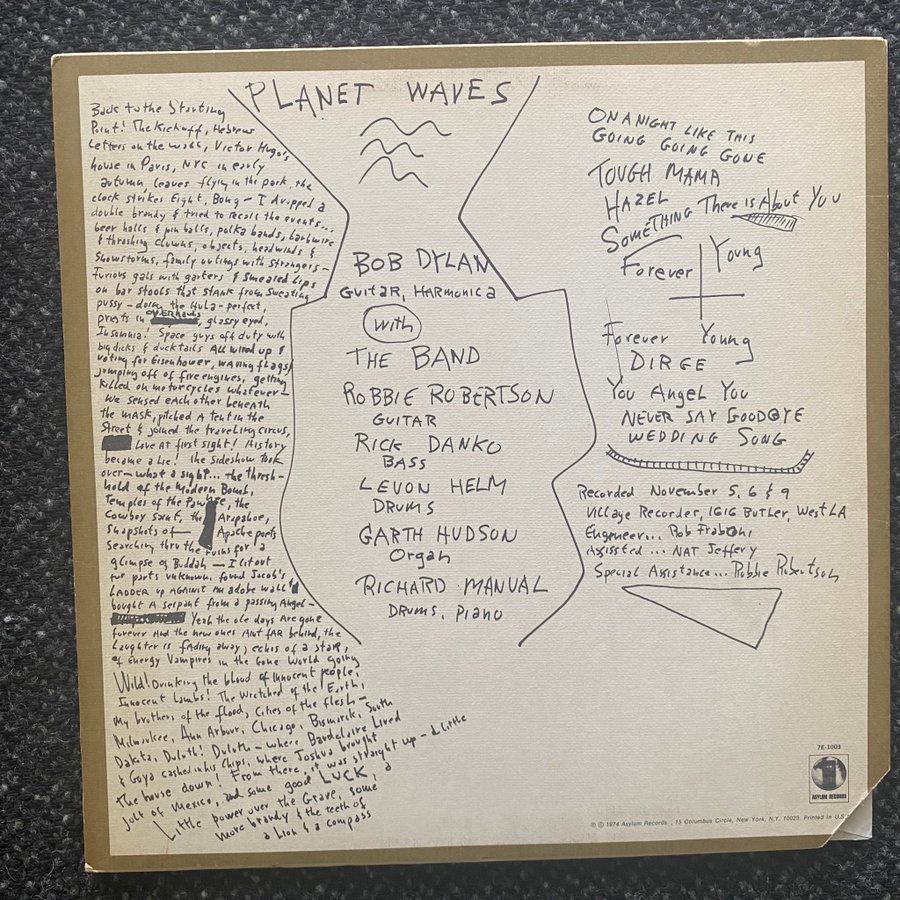 PLANET WAVES
Back to the Starting
Point! The Kickoff, Hebrew
Letters on the wall, Victor Hugo's
house in Paris, NYC in early
autumn, leaves flying in the park, the
clock strikes Eight, Bong - I dripped a
double brandy & tried to recall the events...
beer halls & pin balls, polka bands, barbwire
& thrashing clowns, objects, headwinds &
Snowstorms, family outings with strangers -
Furious gals with garters & smeared Lips
on bar stools that stank from sweating
pussy - doing the Hula - perfect,
priests in overhauls, glassy eyed,
Insomnia! Space guys off duty with
big dicks & ducktails All wired up &
voting for Eisenhower, waving flags &
jumping off of fire engines, getting
killed on motorcycles whatever -
We sensed each other beneath
the mask, pitched a tent in the
Street & joined the traveling circus,
Love at first sight! History
became a Lie! the sideshow took
over - what a sight... the thresh-
hold of the Modern Bomb,
Temples of the Pawnee, the
Cowboy Saint, the Arapahoe,
Snapshots of Apache poets
searching thru the ruins for a
glimpse of Buddah - I lit out
for parts unknown, found Jacob's
LADDER up AGAINST an adobe wall &
bought A serpant from a passing Angel -
Yeah the ole days Are gone
forever And the new ones Aint fAR behind, the
Laughter is fading away, echos of a star,
of Energy Vampires in the Gone World going
Wild! Drinking the blood of innocent people,
Innocent Lambs! The Wretched of the Earth,
My brothers of the flood, Cities of the flesh -
Milwaukee, Ann Arbour, Chicago, Bismarck, South
Dakota, Duluth! Duluth - where Baudelaire Lived
& Goya cashed in his Chips, where Joshua brought
the house down! From there, it was straight up - a Little
jolt of Mexico, and some good LUCK, a
Little power over the Grave, some
more brandy & the teeth of
a Lion & a compass
BOB DYLAN
Guitar, Harmonica
with
THE BAND
ROBBIE ROBERTSON
GUITAR
RICK DANKO
BASS
LEVON HELM
DRUMS
GARTH HUDSON
Organ
RICHARD MANUAL
DRUMS, Piano
ON A NIGHT LIKE THIS
GOING GOING GONE
TOUGH MAMA
HAZEL
SOMETHING There is About You
Forever Young
Forever Young
DIRGE
You Angel You
NEVER SAY GOODBYE
WEDDING SONG
Recorded November 5, 6 & 9
Village Recorder, 1616 Butler, West LA
Engineer... Rob Fraboni
Assisted... NAT Jeffery
Special Assistance... Robbie Robertson
7E-1003
ASYLUM RECORDS
℗ © 1974 Asylum Records, 15 Columbus Circle, New York, N.Y. 10023. Printed in U.S.